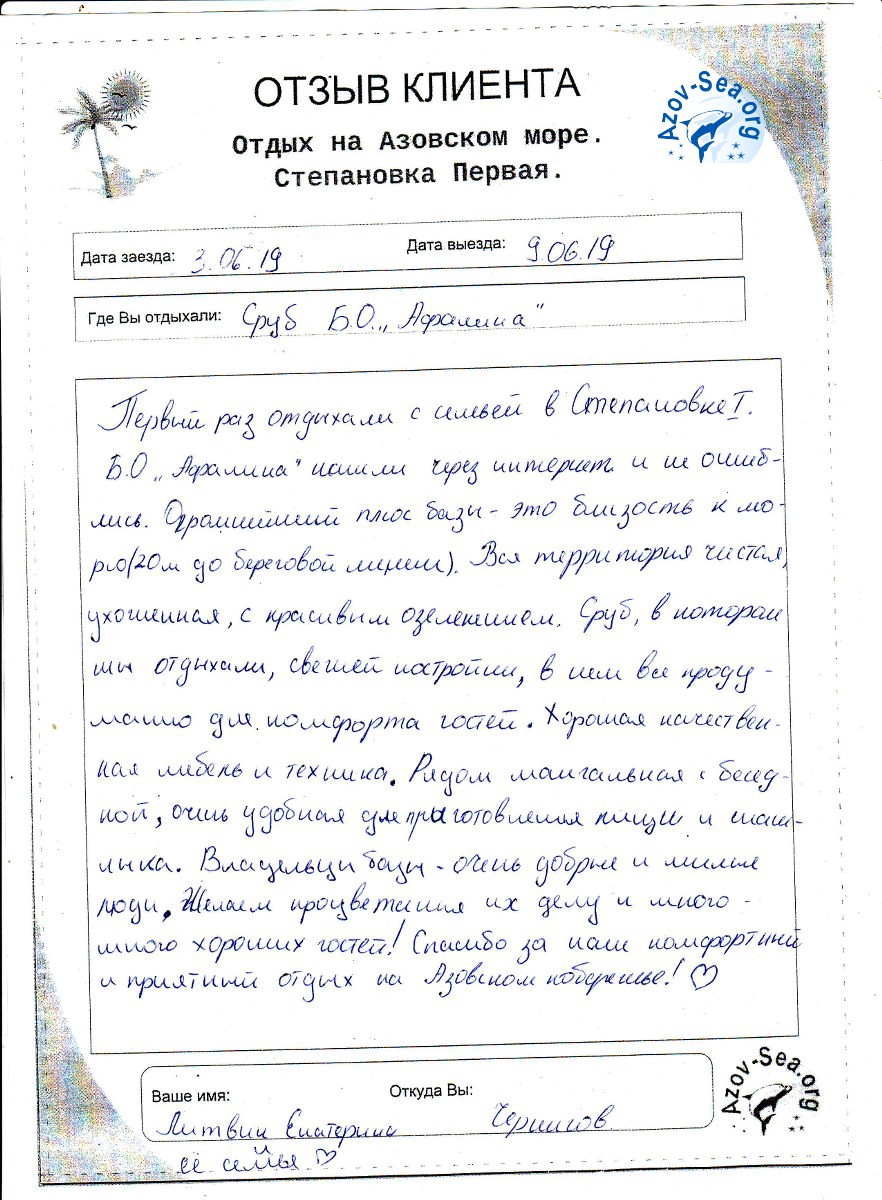 ОТЗЫВ КЛИЕНТА
Azov-Sea.org
Отдых на Азовском море.
Степановка Первая.
Дата заезда: 3.06.19 Дата выезда: 9.06.19
Где Вы отдыхали: Сруб Б.О. „Афалина"
Первый раз отдыхали с семьей в Степановке I.
Б.О „Афалина" нашли через интернет и не ошиб-
лись. Огромнейший плюс базы - это близость к мо-
рю (20м до береговой линии). Вся территория чистая,
ухоженная, с красивым озеленением. Сруб, в котором
мы отдыхали, свежей постройки, в нем все проду-
манно для комфорта гостей. Хорошая качествен-
ная мебель и техника. Рядом мангальная с бесед-
кой, очень удобная для приготовления пищи и шаш-
лыка. Владельцы базы - очень добрые и милые
люди. Желаем процветания их делу и много-
много хороших гостей! Спасибо за наш комфортный
и приятный отдых на Азовском побережье! ♡
Ваше имя: Откуда Вы:
Литвин Екатерина Чернигов
её семья ♡
Azov-Sea.org